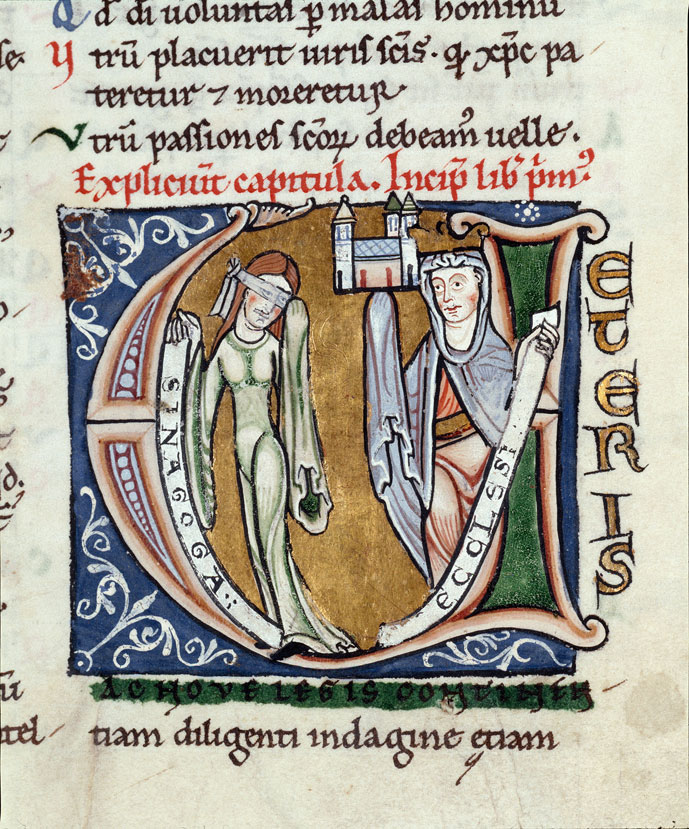 Q d di uoluntaſ ꝑ malaſ hominū
V trū placuerit uiriſ ſc̄iſ · qͥ xp̄c pa
teretur ⁊ moreretur.
V trū paſſioneſ ſc̄oꝝ debeamꝰ uelle.
Explicıūt capitula. Incip̄ lib̄ p̄mꝰ
U ETERIS
SINAGOGA
ECCLESI
AC NOVE LEGIS CONTINEN
tiam diligenti indagine etiam